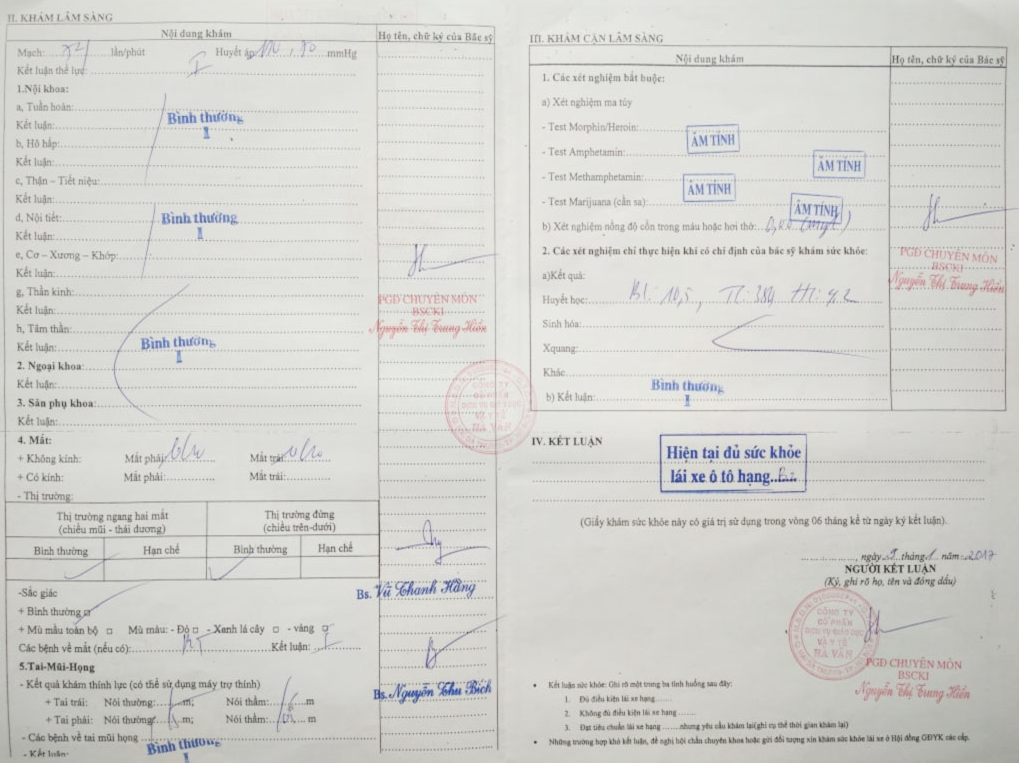 II. KHÁM LÂM SÀNG
Nội dung khám
Họ tên, chữ ký của Bác sỹ
Mạch: 72 lần/phút Huyết áp: mmHg
Kết luận thể lực: I
1.Nội khoa:
a, Tuần hoàn:
Bình thường
Kết luận:
I
b, Hô hấp:
Kết luận:
c, Thận – Tiết niệu:
Kết luận:
d, Nội tiết:
Bình thường
Kết luận:
I
e, Cơ – Xương – Khớp:
Kết luận:
g, Thần kinh:
PGĐ CHUYÊN MÔN
Kết luận:
BSCKI
h, Tâm thần:
Nguyễn Thị Trung Hiền
Kết luận:
Bình thường
2. Ngoại khoa:
I
Kết luận:
3. Sản phụ khoa:
Kết luận:
4. Mắt:
+ Không kính: Mắt phải: Mắt trái:
+ Có kính: Mắt phải: Mắt trái:
- Thị trường:
Thị trường ngang hai mắt Thị trường đứng
(chiều mũi - thái dương) (chiều trên-dưới)
Bình thường Hạn chế Bình thường Hạn chế
-Sắc giác
Bs. Vũ Thanh Hằng
+ Bình thường
+ Mù mầu toàn bộ Mù mầu: - Đỏ - Xanh lá cây - vàng
Các bệnh về mắt (nếu có): KT Kết luận: I
5.Tai-Mũi-Họng
- Kết quả khám thính lực (có thể sử dụng máy trợ thính)
Bs. Nguyễn Thu Bích
+ Tai trái: Nói thường: m; Nói thầm: m
+ Tai phải: Nói thường: m; Nói thầm: m
- Các bệnh về tai mũi họng
Bình thường
- Kết luận:
I
CÔNG TY
CỔ PHẦN
VÀ Y TẾ
HÀ VĂN
III. KHÁM CẬN LÂM SÀNG
Nội dung khám
Họ tên, chữ ký của Bác sỹ
1. Các xét nghiệm bắt buộc:
a) Xét nghiệm ma túy
- Test Morphin/Heroin:
ÂM TÍNH
- Test Amphetamin:
ÂM TÍNH
- Test Methamphetamin:
ÂM TÍNH
- Test Marijuana (cần sa):
ÂM TÍNH
b) Xét nghiệm nồng độ cồn trong máu hoặc hơi thở:
2. Các xét nghiệm chỉ thực hiện khi có chỉ định của bác sỹ khám sức khỏe:
PGĐ CHUYÊN MÔN
BSCKI
Nguyễn Thị Trung Hiền
a)Kết quả:
Huyết học:
Sinh hóa:
Xquang:
Khác
Bình thường
b) Kết luận:
I
IV. KẾT LUẬN
Hiện tại đủ sức khỏe
lái xe ô tô hạng
(Giấy khám sức khỏe này có giá trị sử dụng trong vòng 06 tháng kể từ ngày ký kết luận).
ngày 9 tháng 1 năm 2017
NGƯỜI KẾT LUẬN
(Ký, ghi rõ họ, tên và đóng dấu)
CÔNG TY
CỔ PHẦN
DỊCH VỤ GIÁO DỤC
VÀ Y TẾ
HÀ VĂN
PGĐ CHUYÊN MÔN
BSCKI
Nguyễn Thị Trung Hiền
• Kết luận sức khỏe: Ghi rõ một trong ba tình huống sau đây:
1. Đủ điều kiện lái xe hạng
2. Không đủ điều kiện lái xe hạng
3. Đạt tiêu chuẩn lái xe hạng nhưng yêu cầu khám lại(ghi cụ thể thời gian khám lại)
• Những trường hợp khó kết luận, đề nghị hội chẩn chuyên khoa hoặc gửi đối tượng xin khám sức khỏe lái xe ở Hội đồng GĐYK các cấp.